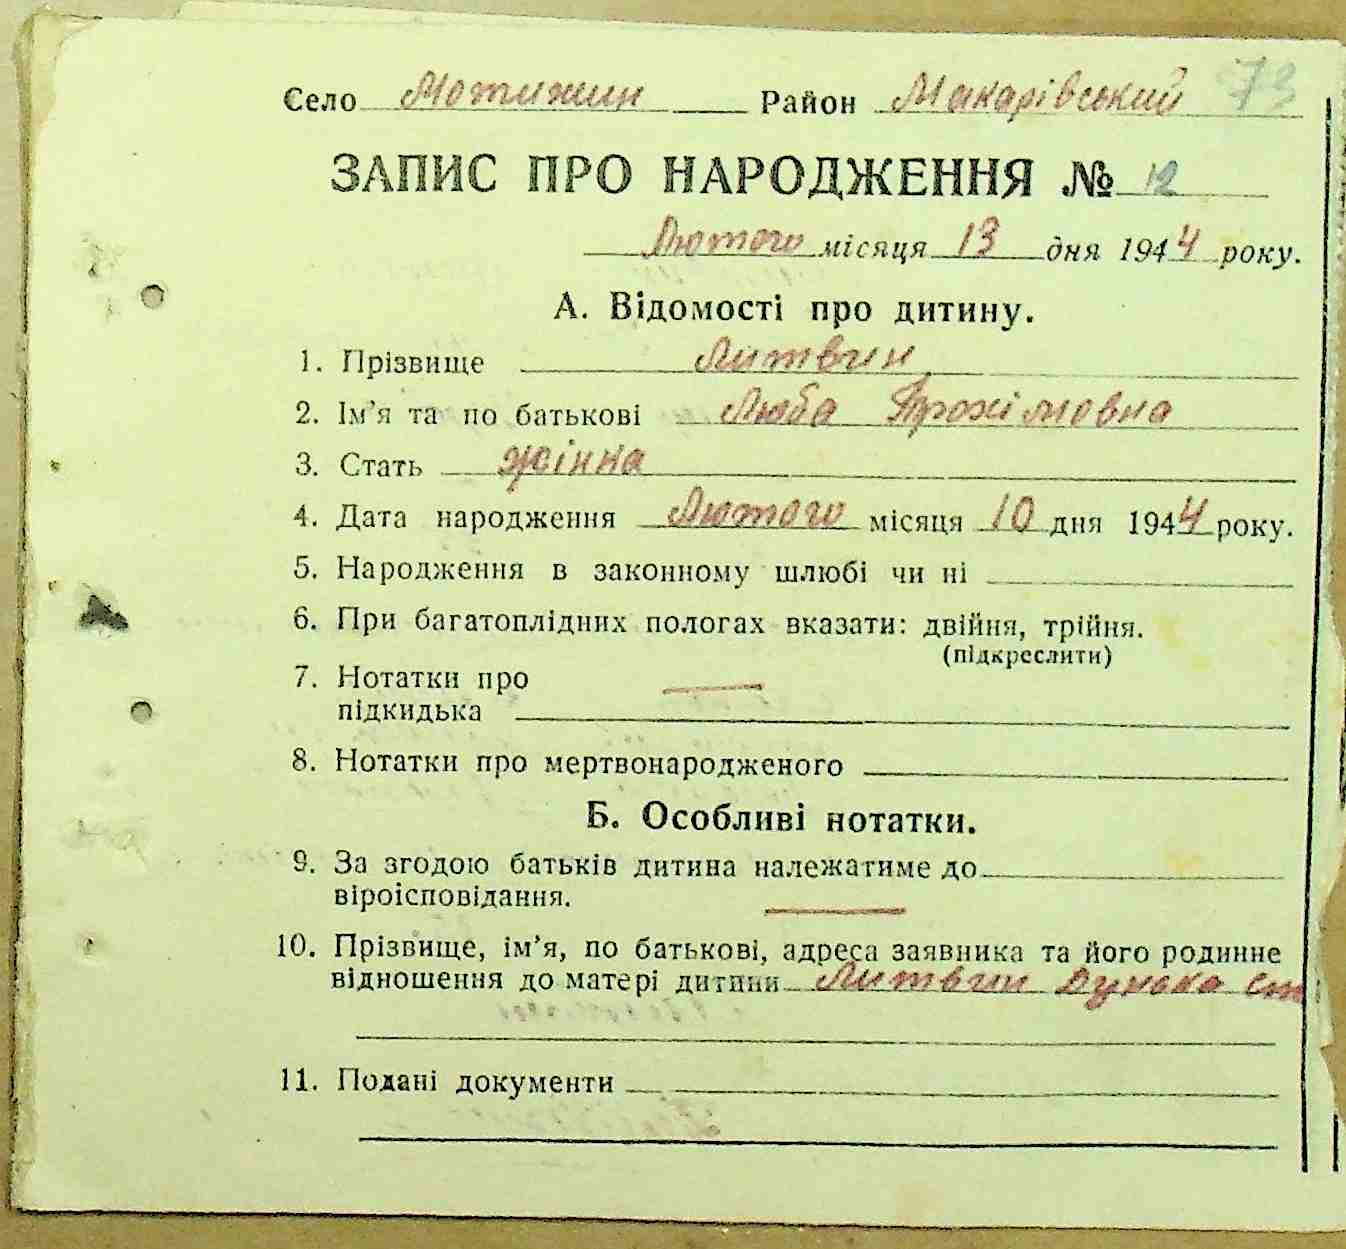 73
Село Мотижин Район Макарівський
ЗАПИС ПРО НАРОДЖЕННЯ № 12
Лютого місяця 13 дня 1944 року.
А. Відомості про дитину.
1. Прізвище Литвин
2. Ім'я та по батькові Люба Трохімовна
3. Стать жінна
4. Дата народження Лютого місяця 10 дня 1944 року.
5. Народження в законному шлюбі чи ні
6. При багатоплідних пологах вказати: двійня, трійня.
(підкреслити)
7. Нотатки про
підкидька
8. Нотатки про мертвонародженого
Б. Особливі нотатки.
9. За згодою батьків дитина належатиме до
віроісповідання.
10. Прізвище, ім'я, по батькові, адреса заявника та його родинне
відношення до матері дитини Литвин Дунька Ст
11. Подані документи